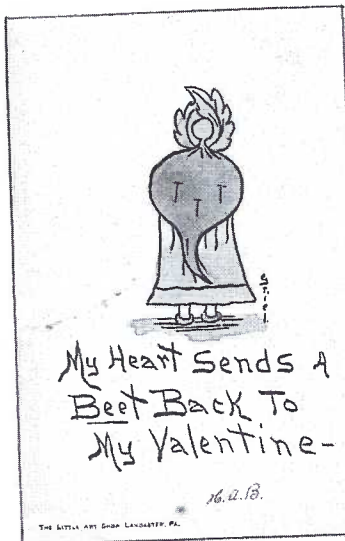 My Heart Sends A
Beet Back To
My Valentine-
H.A.B.
THE LITTLE ART SHOP LANCASTER, PA.